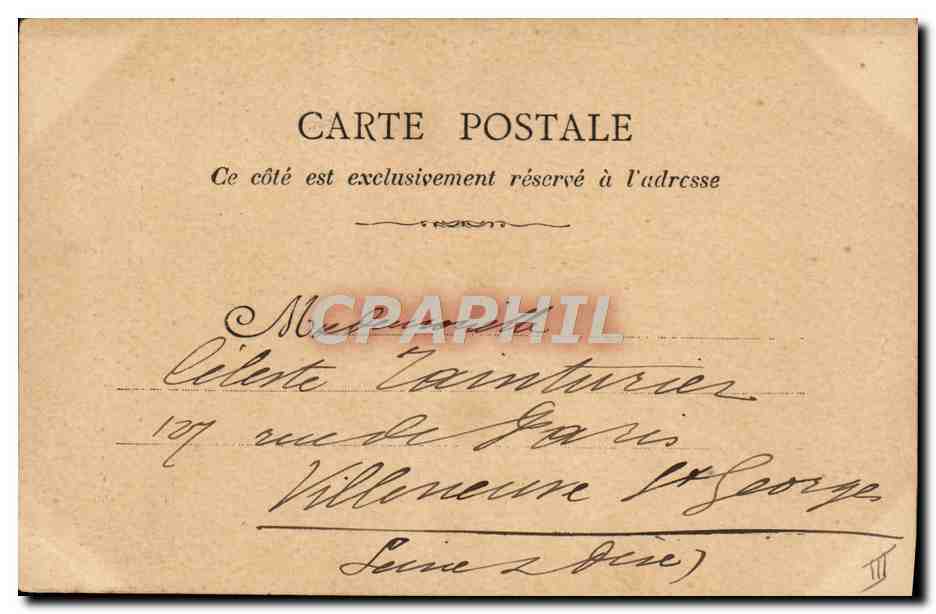 CARTE POSTALE
Ce côté est exclusivement réservé à l'adresse
Mademoiselle
CPRAPHIL
Céleste Tainturier
127 rue de Paris
Villeneuve St Georges
Seine & Oise)
III